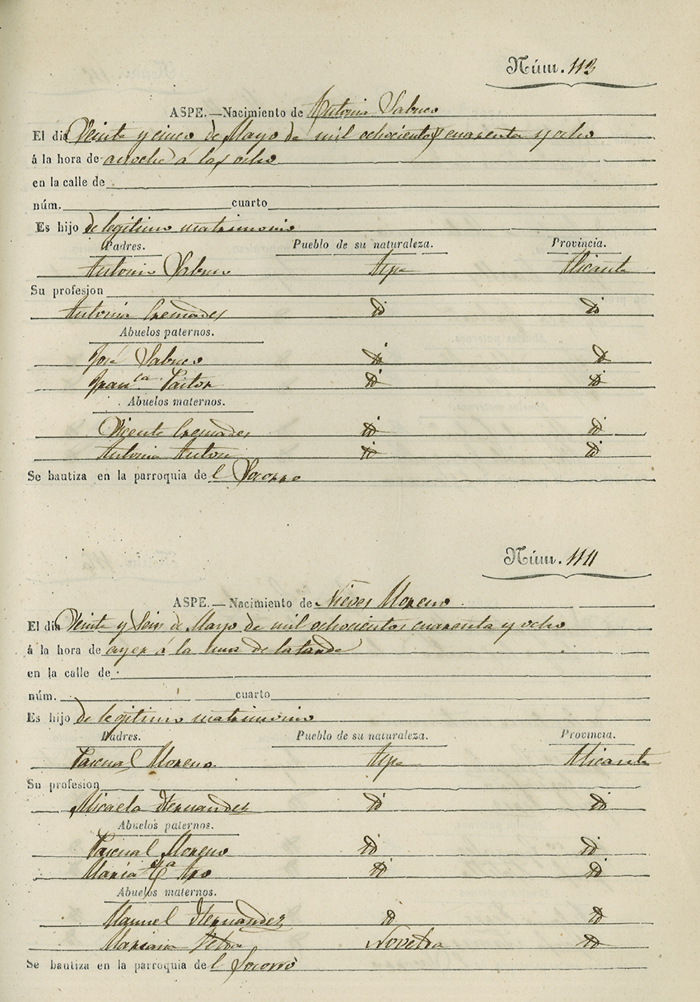 Núm. 113
ASPE.—Nacimiento de Antonia Sabuco
El dia Veinte y cinco de Mayo de mil ochocientos cuarenta y ocho
á la hora de anoche á las ocho
en la calle de
núm. cuarto
Es hijo de legitimo matrimonio
Padres. Pueblo de su naturaleza. Provincia.
Antonio Sabuco Aspe Alicante
Su profesion
Antonia Cremades id id
Abuelos paternos.
José Sabuco id id
Franca Pastor id id
Abuelos maternos.
Vicente Cremades id id
Antonia Anton id id
Se bautiza en la parroquia de l Socorro
Núm. 114
ASPE.—Nacimiento de Nieves Moreno
El dia Veinte y Seis de Mayo de mil ochocientos cuarenta y ocho
á la hora de ayer á la una de la tarde
en la calle de
núm. cuarto
Es hijo de legitimo matrimonio
Padres. Pueblo de su naturaleza. Provincia.
Pascual Moreno Aspe Alicante
Su profesion
Micaela Hernandez id id
Abuelos paternos.
Pascual Moreno id id
Maria id id
Abuelos maternos.
Manuel Hernandez id id
Mariana Novelda id
Se bautiza en la parroquia de l Socorro